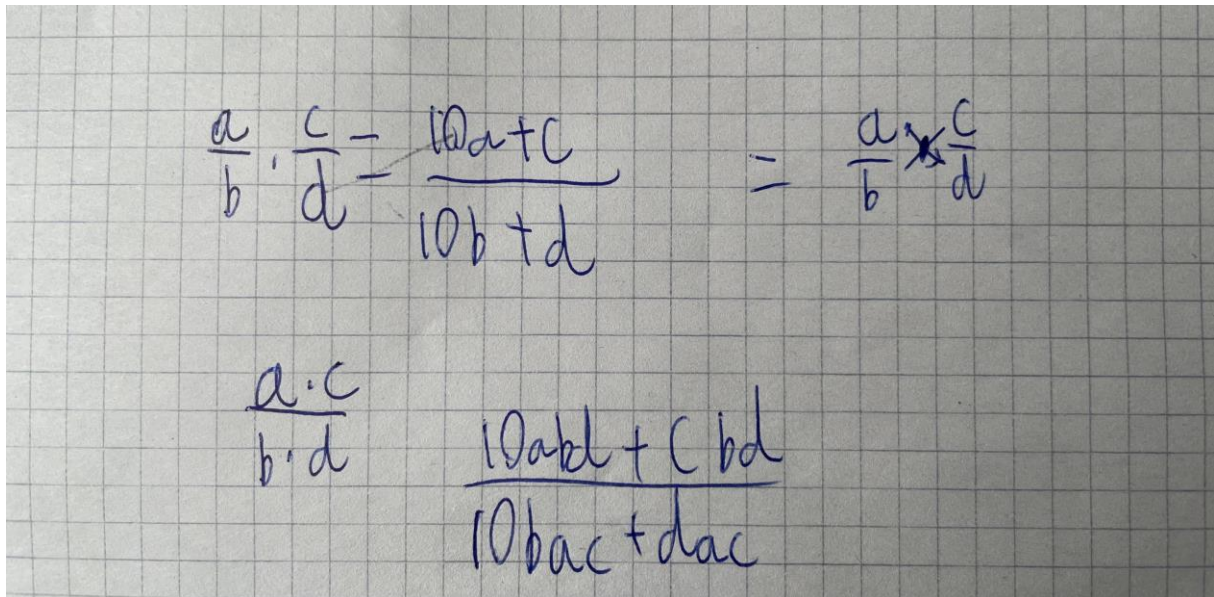 a/b · c/d = (10a+c)/(10b+d) = a/b × c/d
(a·c)/(b·d) (10abd + cbd)/(10bac + dac)